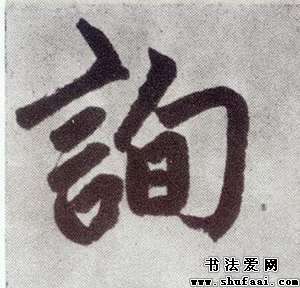 詢
书法爱网
www.shufaai.com